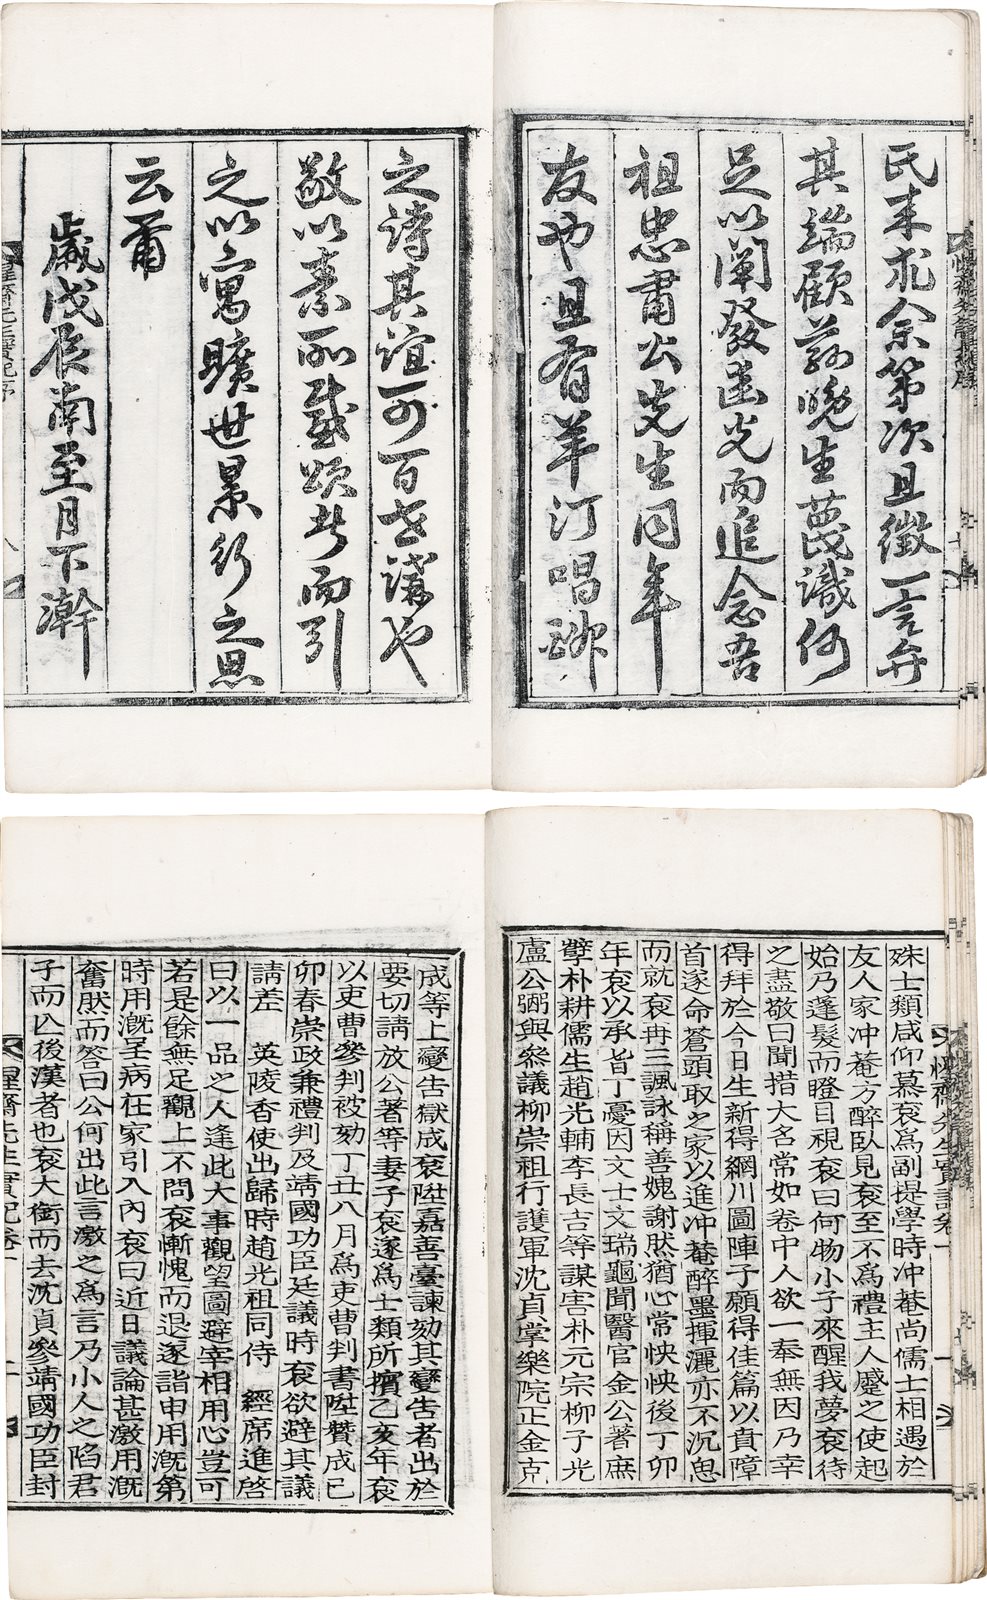 氏来求余第次且徵一言弁
其端顧茲晚生蔑識何
足以闡發幽光而追念吾
祖忠肅公先生同年
友也且有羊汀唱酬
之詩其誼可百世講也
敬以素所感頌者而引
之以寓曠世景行之思
云爾
歲戊辰南至月下澣
惺齋先生實記序
殊士類咸仰慕衮爲副提學時冲菴尚儒士相遇於
友人家冲菴方醉臥見衮至不爲禮主人蹙之使起
始乃蓬髮而瞪目視衮曰何物小子來醒我夢衮待
之盡敬曰聞措大名常如卷中人欲一奉無因乃幸
得拜於今日生新得網川圖陣子願得佳篇以賁障
首遂命蒼頭取之家以進冲菴醉墨揮灑亦不沉思
而就衮冉三諷詠稱善媿謝然猶心常怏怏後丁卯
年衮以承旨丁憂因文士文瑞龜聞醫官金公著庶
孽朴耕儒生趙光輔李長吉等謀害朴元宗柳子光
盧公弼與叅議柳崇祖行護軍沈貞掌樂院正金克
成等上變告獄成衮陞嘉善臺諫劾其變告者出於
要切請放公著等妻子衮遂爲士類所擯乙亥年衮
以吏曹叅判被劾丁丑八月爲吏曹判書陞贊成己
卯春崇政兼禮判及靖國功臣廷議時衮欲避其議
請差 英陵香使出歸時趙光祖同侍 經席進啓
曰以一品之人逢此大事觀望圖避宰相用心豈可
若是餘無足觀上不問衮慚愧而退遂詣申用漑第
時用漑呈病在家引入內衮曰近日議論甚激用漑
奮然而答曰公何出此言激之爲言乃小人之陷君
子而亾後漢者也衮大銜而去沈貞叅靖國功臣封
惺齋先生實記卷一